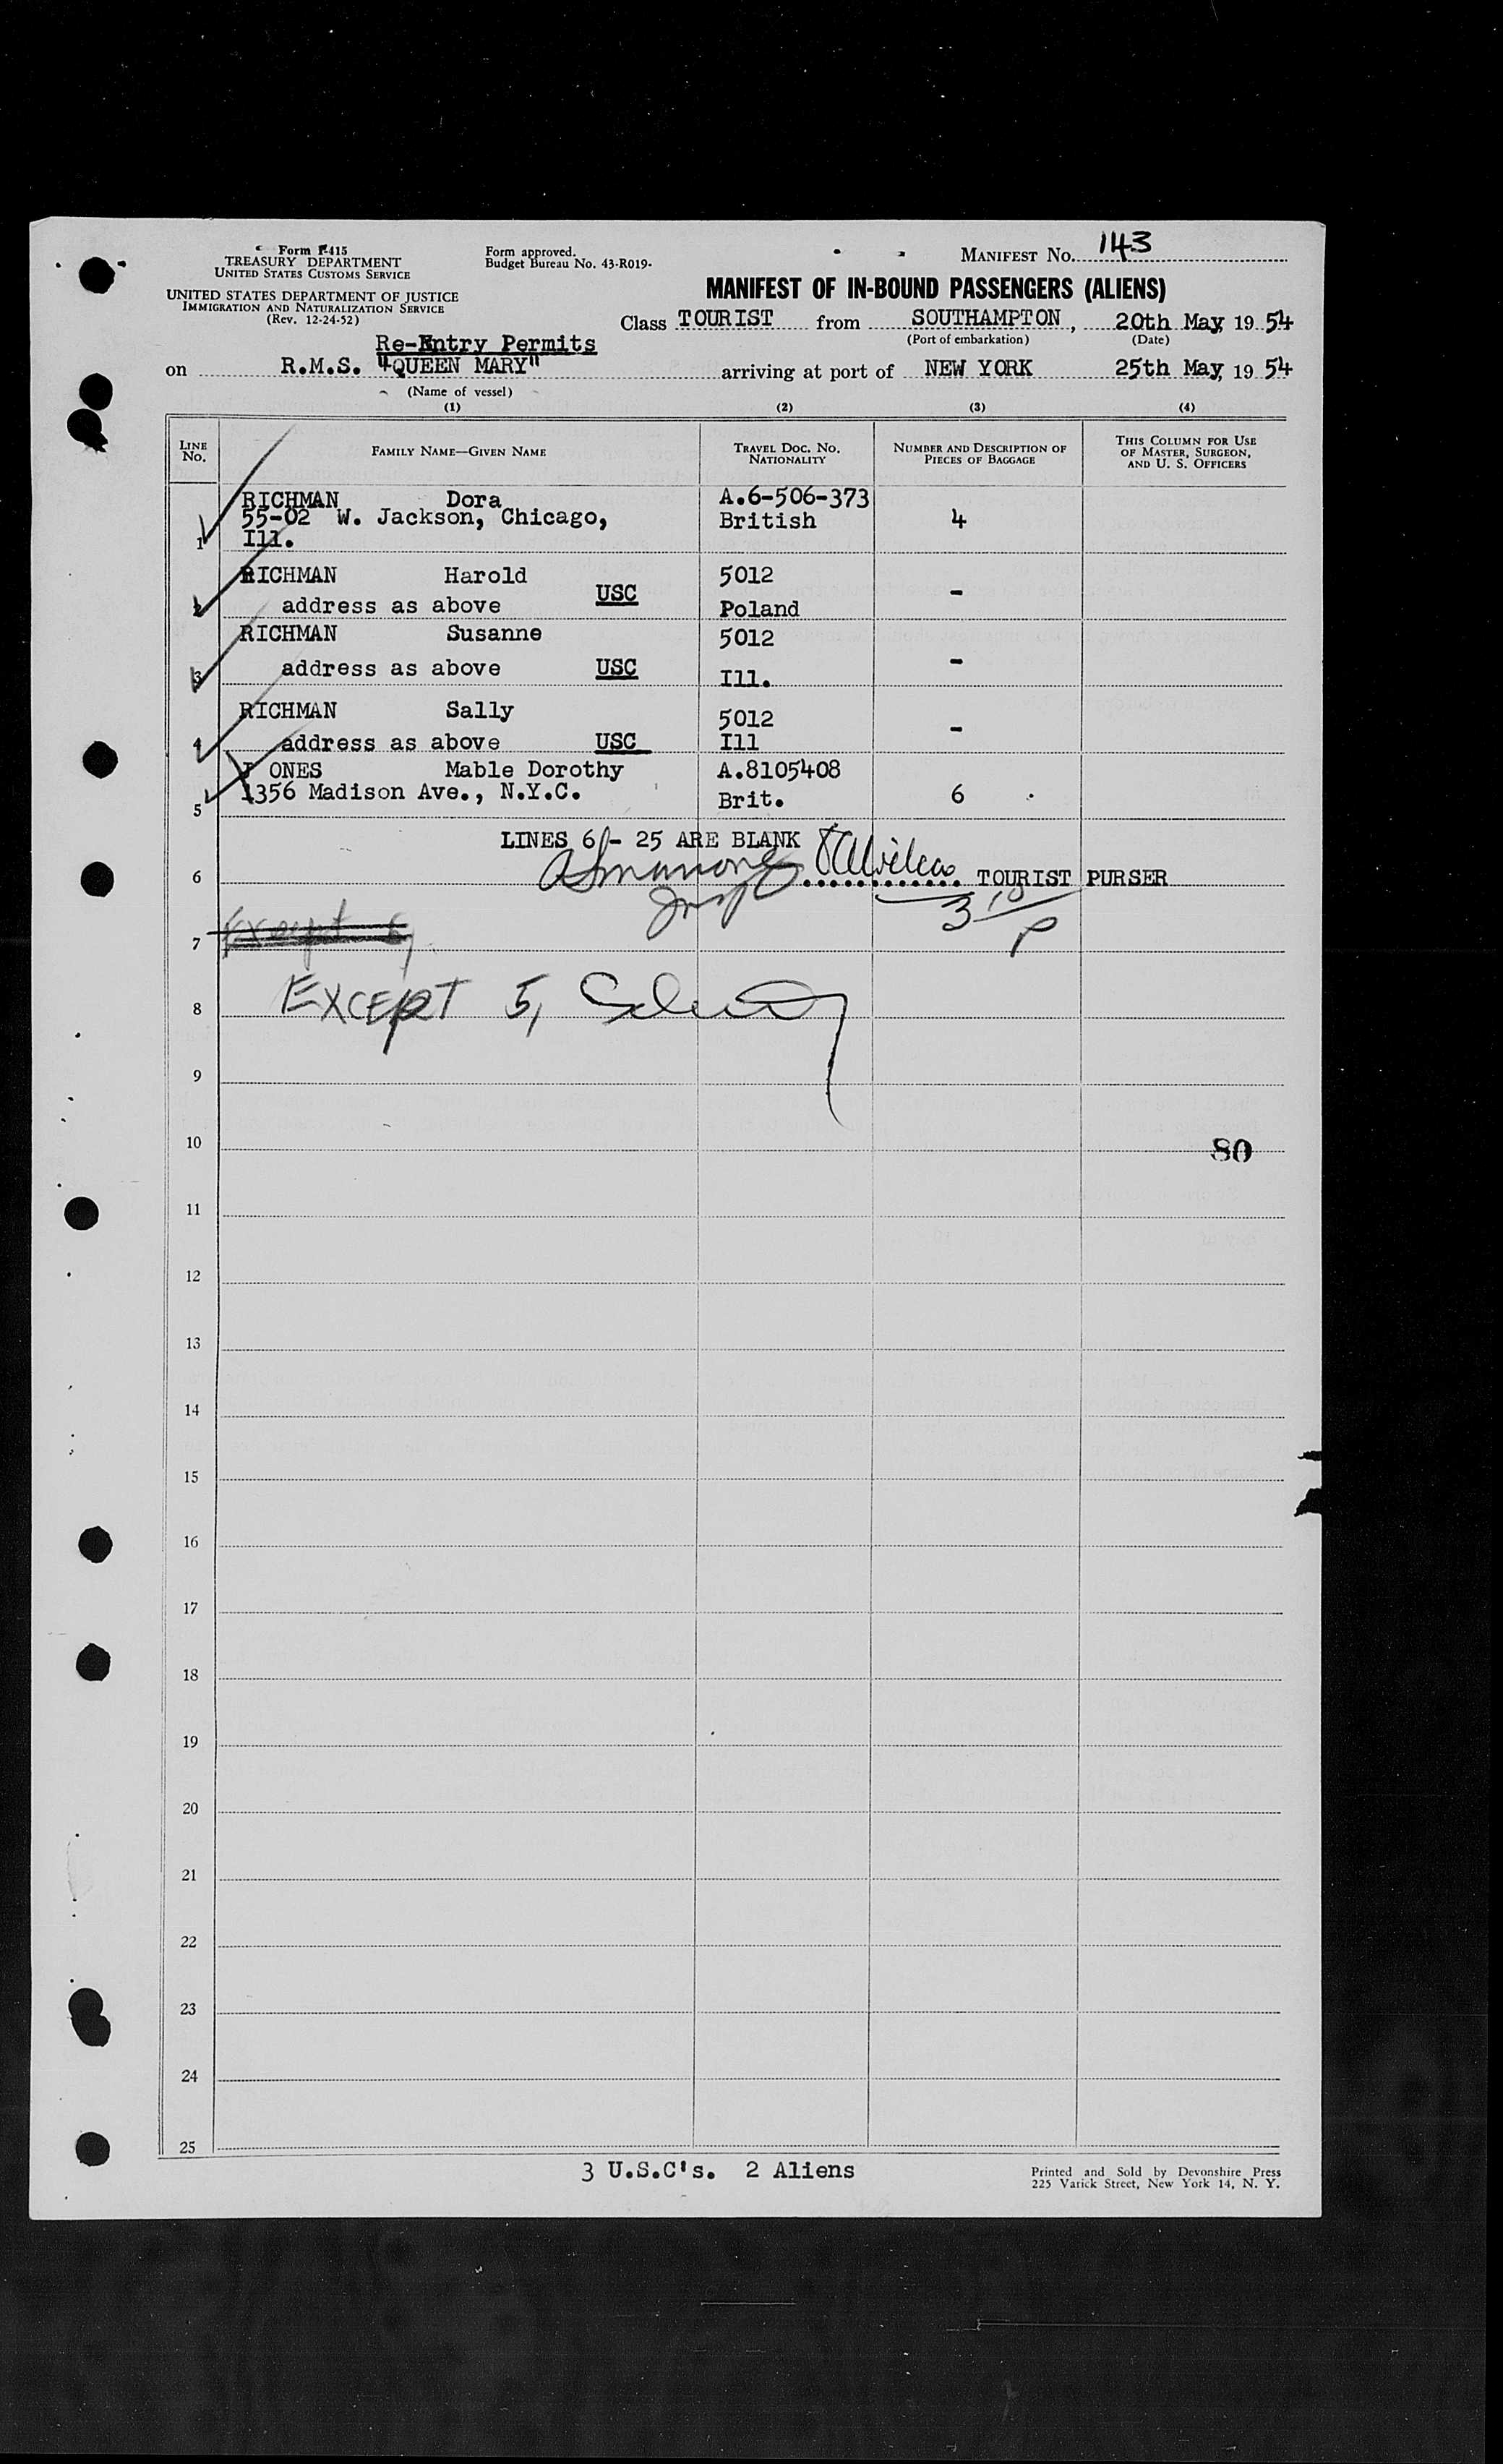 Form I-415
TREASURY DEPARTMENT
UNITED STATES CUSTOMS SERVICE
UNITED STATES DEPARTMENT OF JUSTICE
IMMIGRATION AND NATURALIZATION SERVICE
(Rev. 12-24-52)
Form approved.
Budget Bureau No. 43-R019-
MANIFEST No. 143
MANIFEST OF IN-BOUND PASSENGERS (ALIENS)
Class TOURIST from SOUTHAMPTON, 20th May, 19 54
(Port of embarkation) (Date)
Re-Entry Permits
on R.M.S. "QUEEN MARY" arriving at port of NEW YORK 25th May, 19 54
(Name of vessel)
(1) (2) (3) (4)
LINE No. FAMILY NAME—GIVEN NAME TRAVEL DOC. NO. NATIONALITY NUMBER AND DESCRIPTION OF PIECES OF BAGGAGE THIS COLUMN FOR USE OF MASTER, SURGEON, AND U. S. OFFICERS
RICHMAN Dora A.6-506-373
55-02 W. Jackson, Chicago, British 4
1 Ill.
RICHMAN Harold 5012
2 address as above USC Poland -
RICHMAN Susanne 5012
3 address as above USC Ill. -
RICHMAN Sally 5012
4 address as above USC Ill -
J ONES Mable Dorothy A.8105408
5 1356 Madison Ave., N.Y.C. Brit. 6
LINES 6 - 25 ARE BLANK
6 TOURIST PURSER
7
8 EXCEPT 5,
9
10 80
11
12
13
14
15
16
17
18
19
20
21
22
23
24
25
3 U.S.C's. 2 Aliens
Printed and Sold by Devonshire Press
225 Varick Street, New York 14, N. Y.